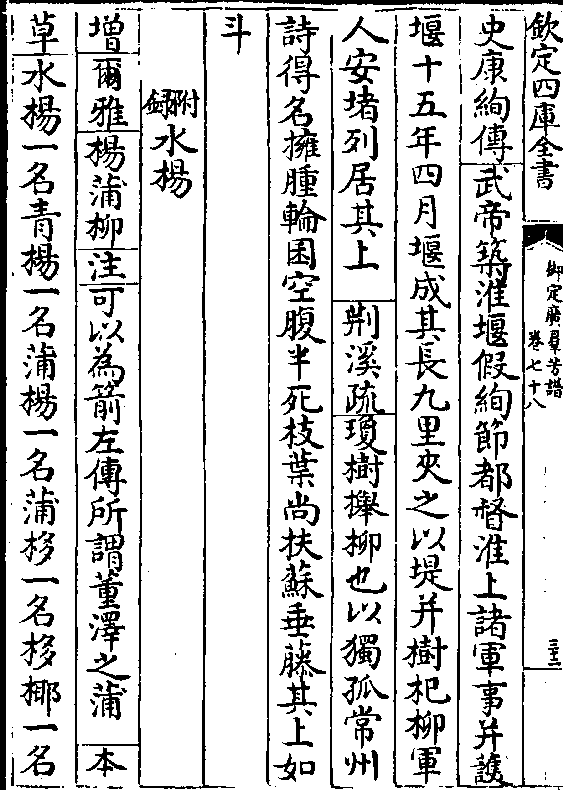 欽定四庫全書
御定廣羣芳譜
卷七十八
三十三
史康絢傳武帝築淮堰假絢節都督淮上諸軍事并護
堰十五年四月堰成其長九里夾之以堤并樹杞柳軍
人安堵列居其上荆溪疏瓊樹櫸柳也以獨孤常州
詩得名擁腫輪囷空腹半死枝葉尚扶蘇垂藤其上如
斗
附錄水楊
增爾雅楊蒲柳注可以為箭左傳所謂董澤之蒲本
草水楊一名青楊一名蒲楊一名蒲栘一名栘栁一名